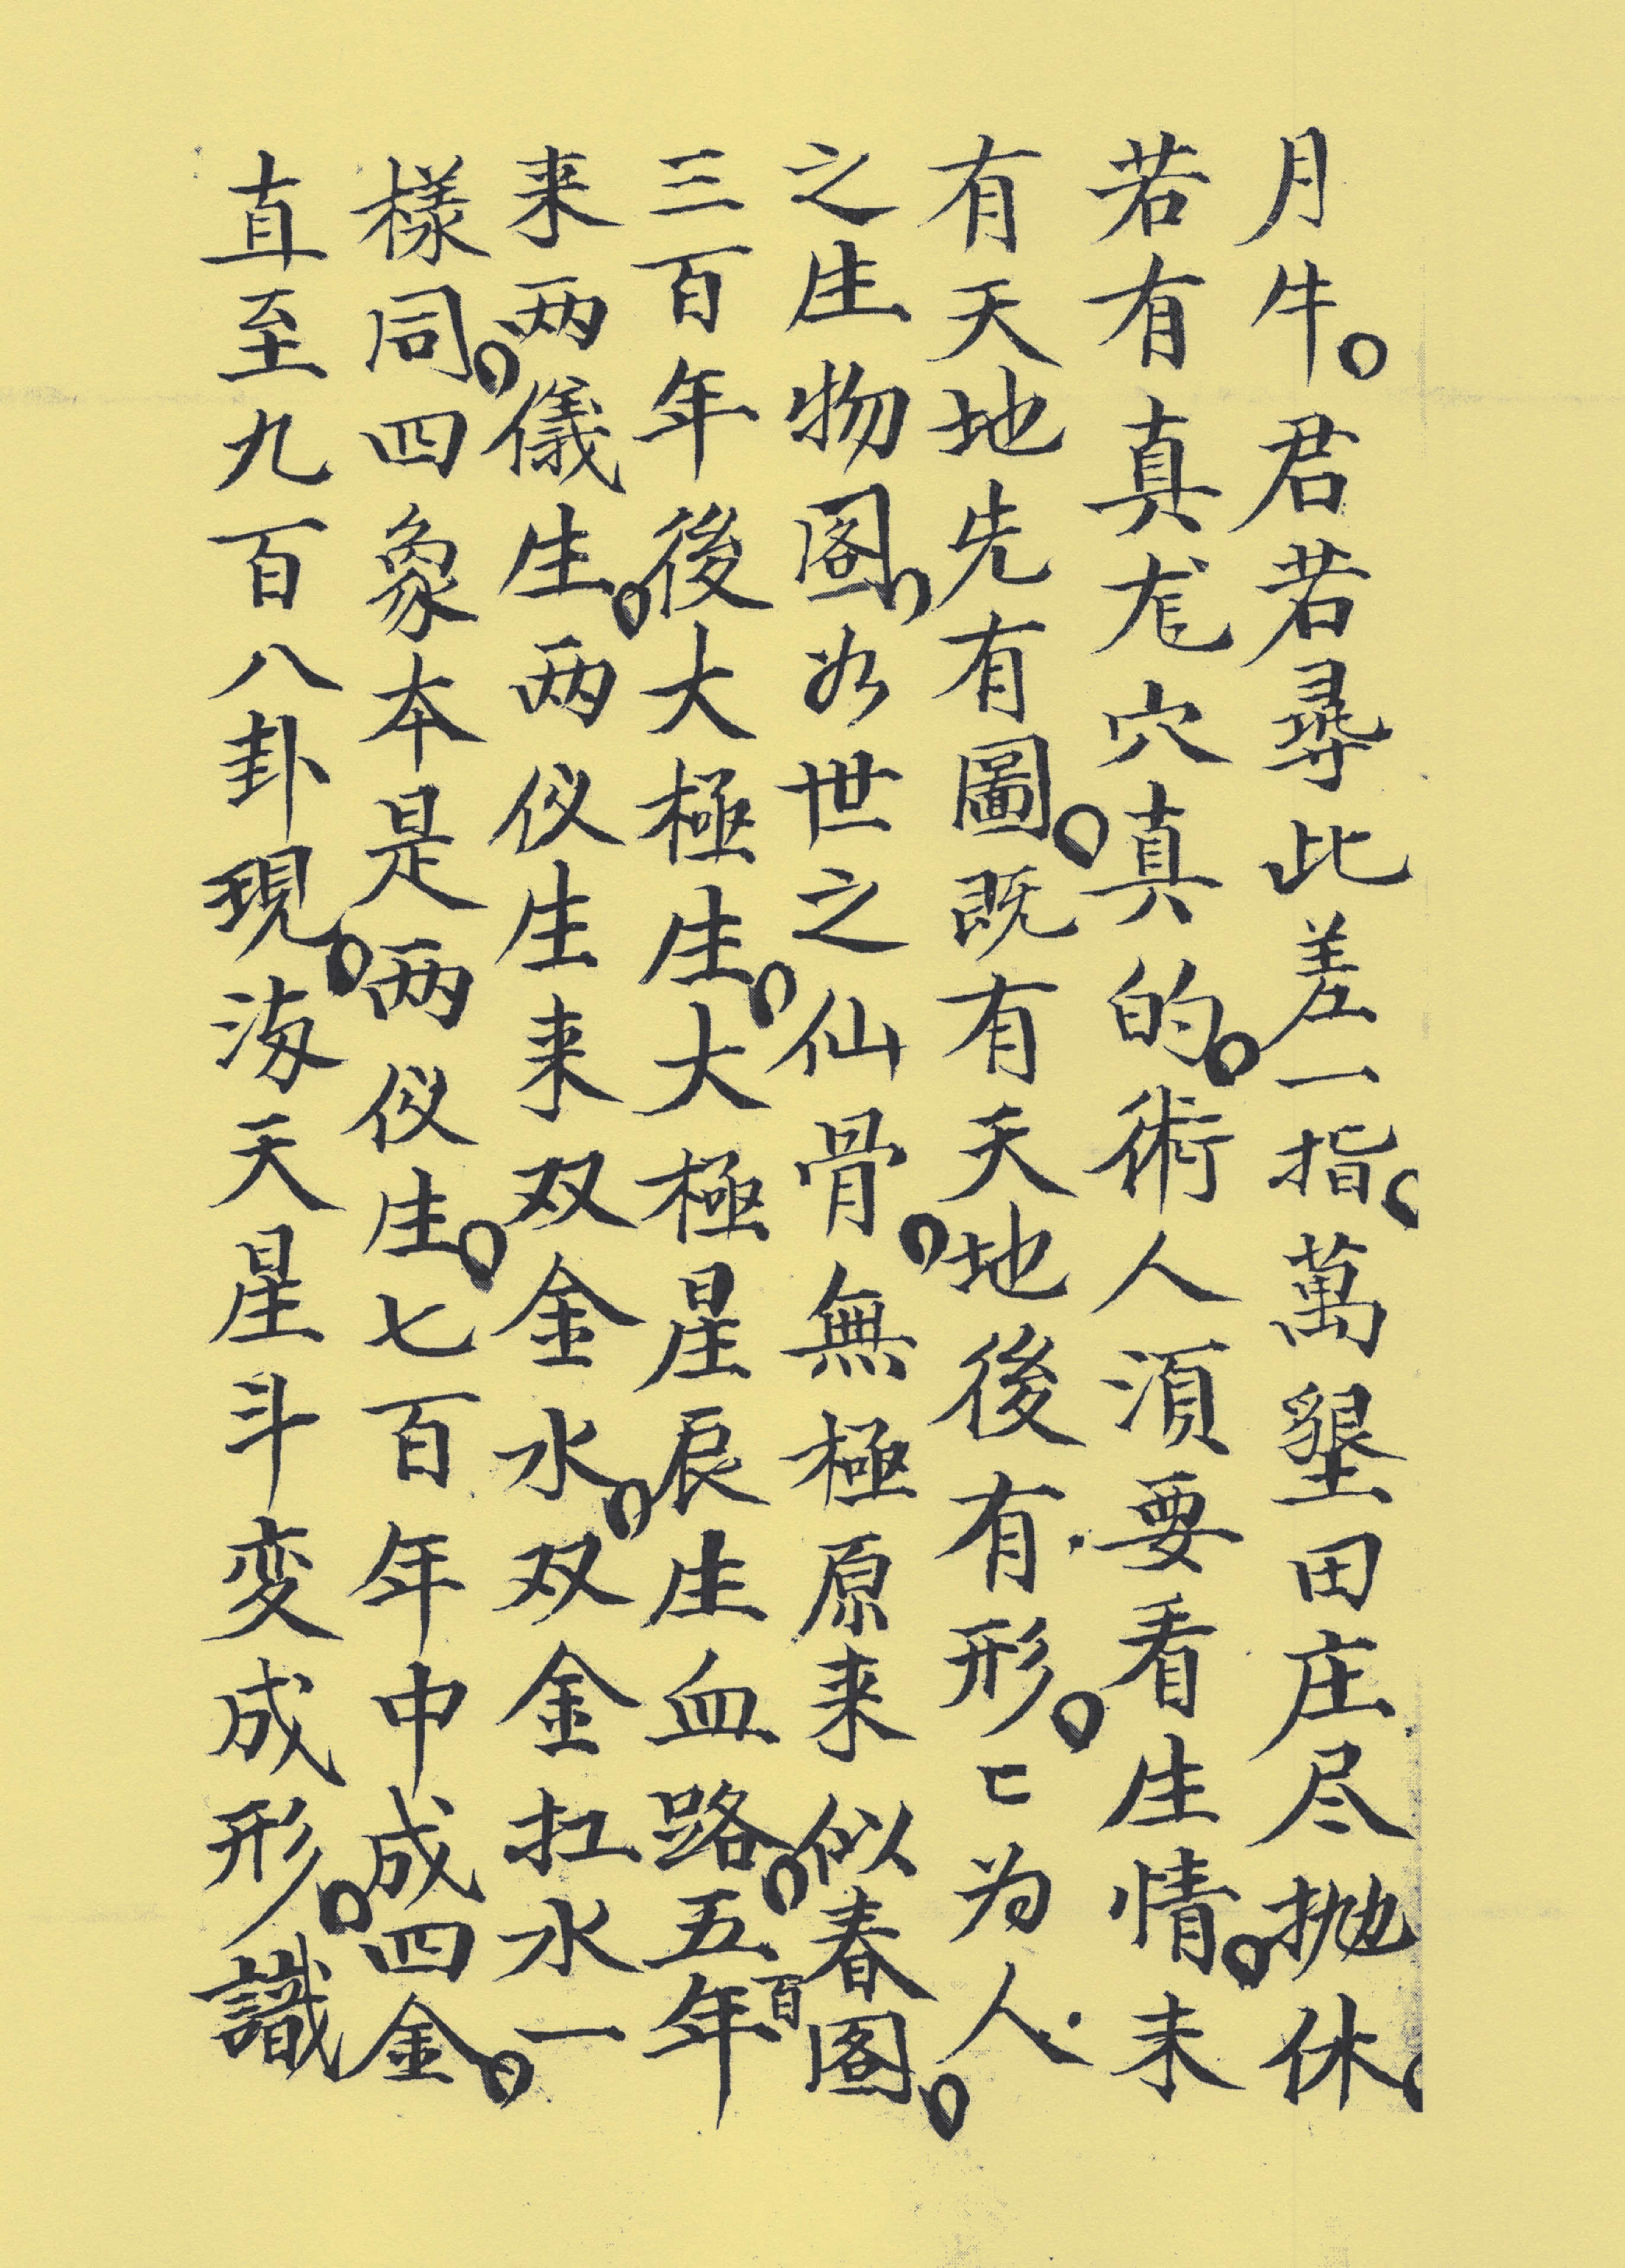 月牛。君若尋此差一指。萬墾田庄尽抛休。
若有真龙穴真的。術人須要看生情。未
有天地先有圖。既有天地後有形。〻为人
之生物图。如世之仙骨。無極原来似春图。
三百年後大極生。大極星辰生血路。五百年
来两儀生。两仪生来双金水。双金扛水一
樣同。四象本是两仪生。七百年中成四金。
直至九百八卦現。海天星斗変成形。識